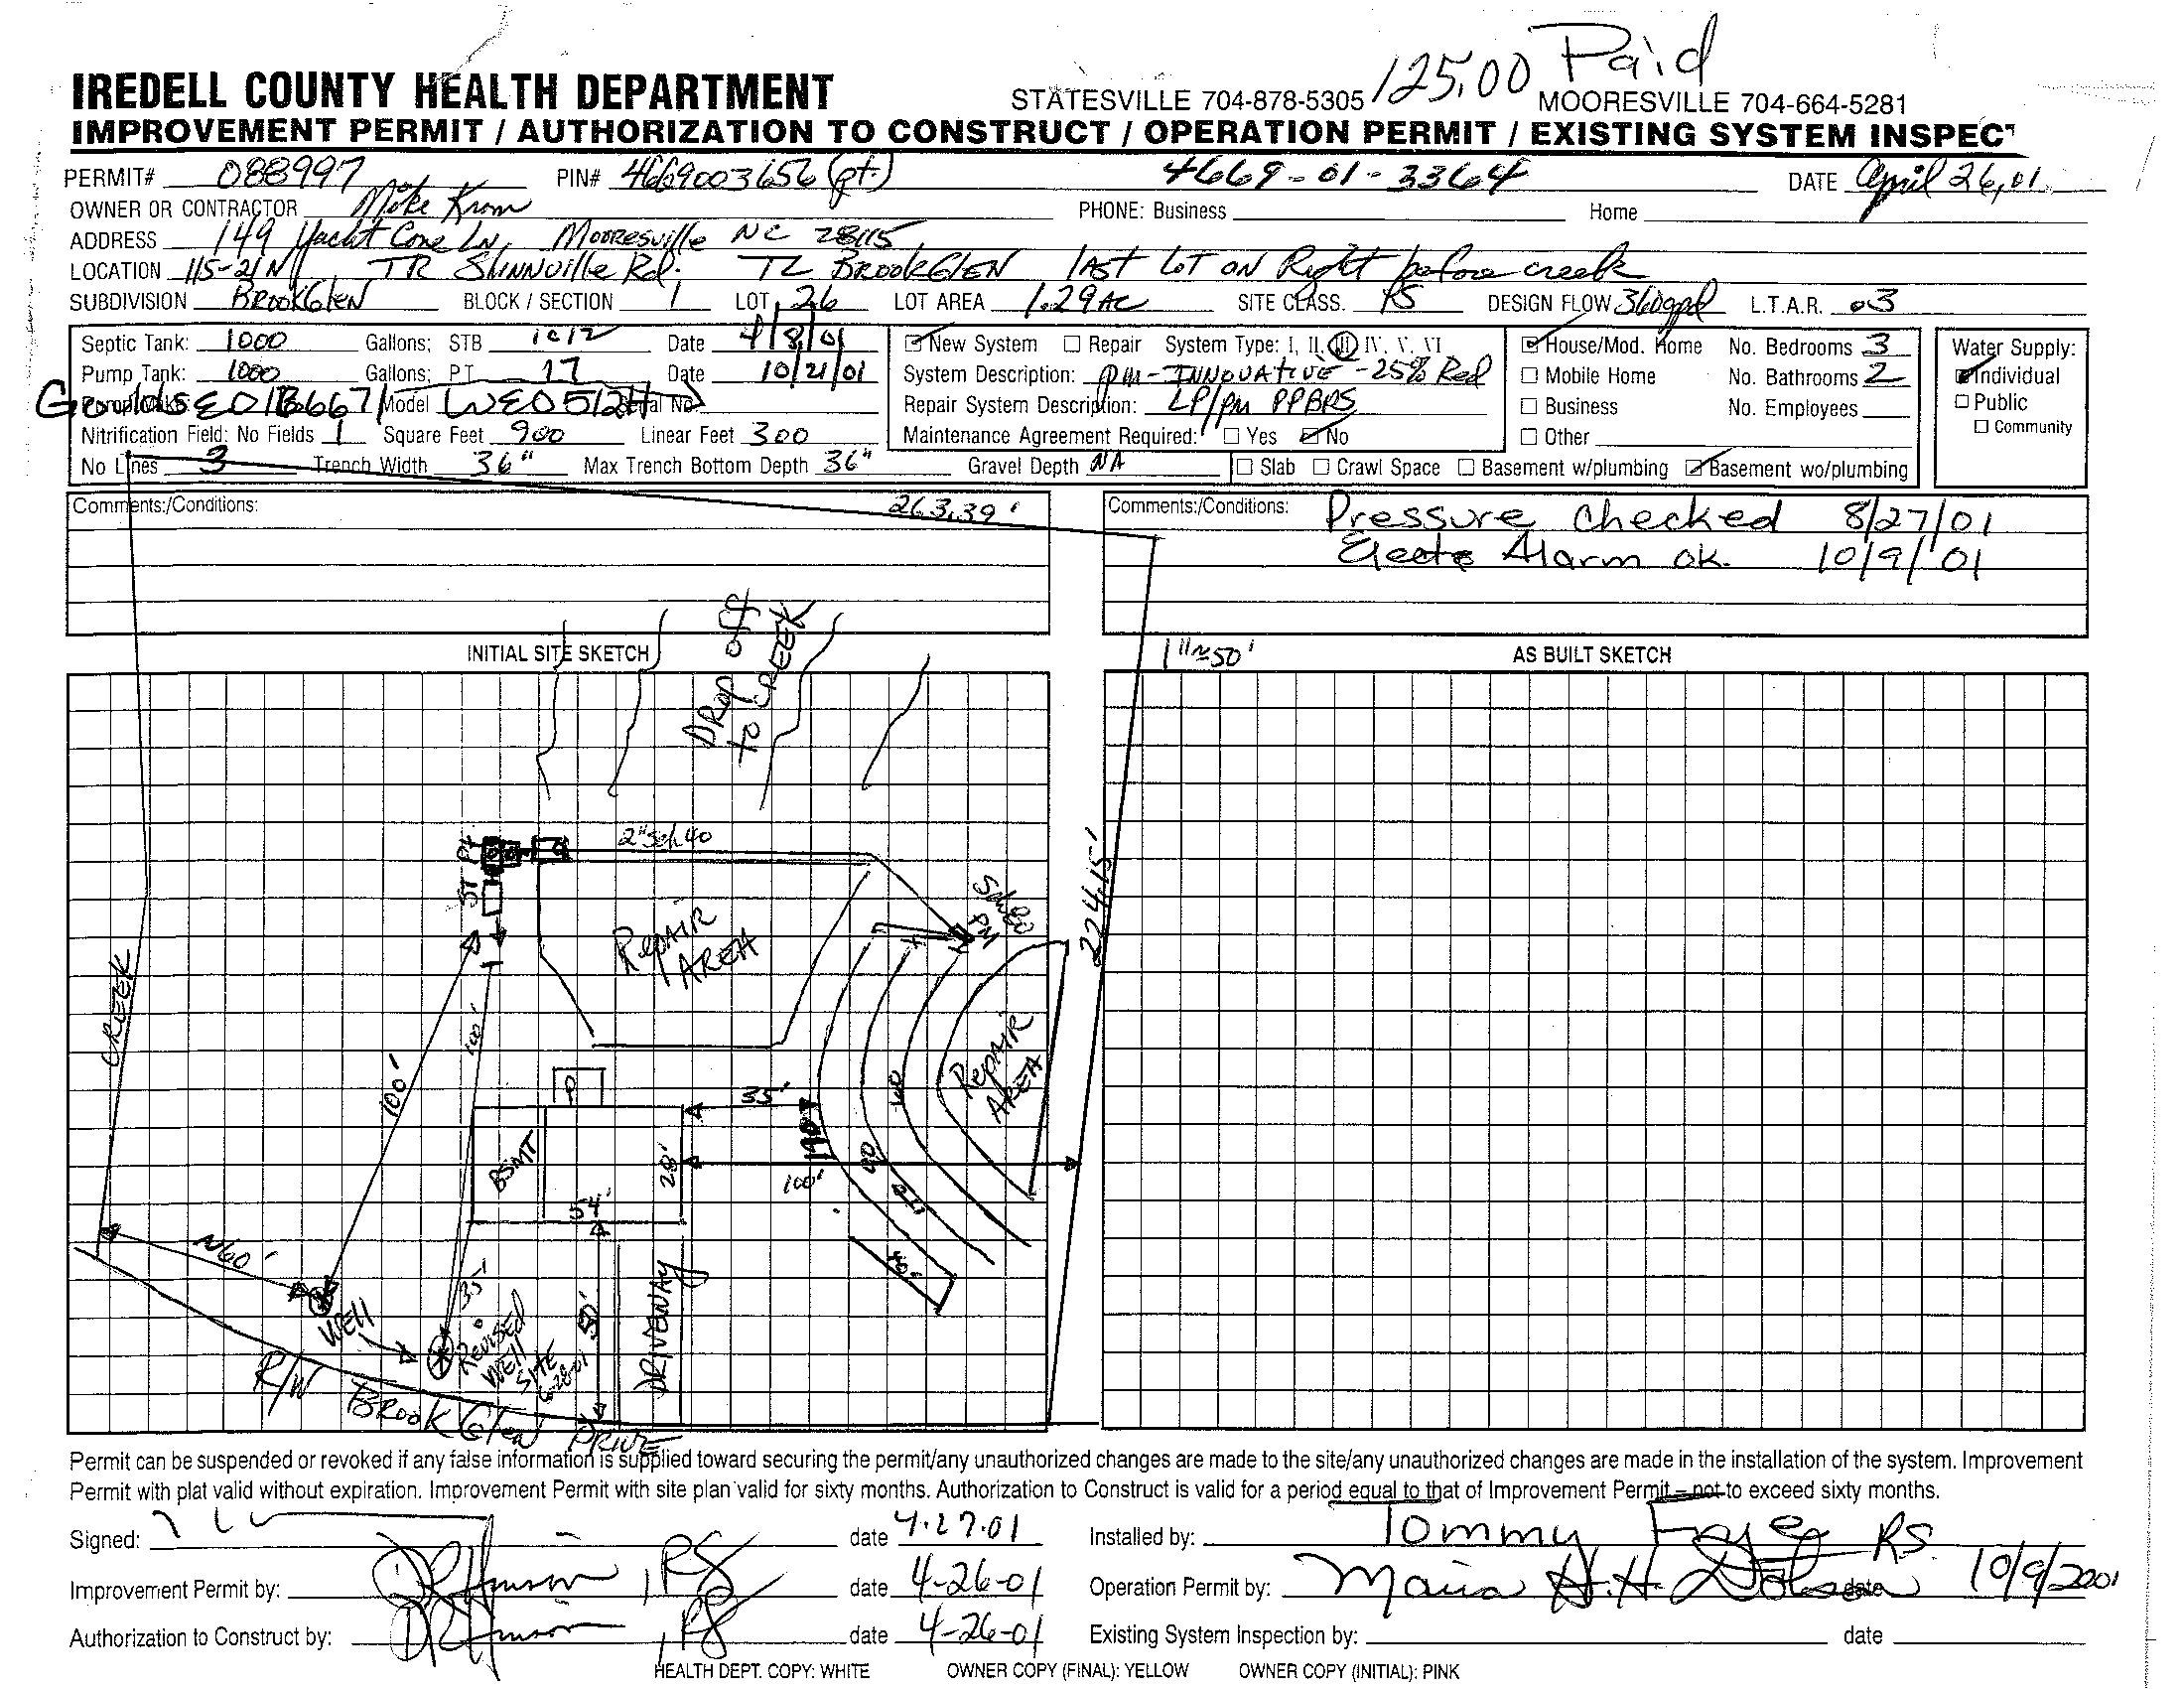 125.00 Paid
IREDELL COUNTY HEALTH DEPARTMENT STATESVILLE 704-878-5305 MOORESVILLE 704-664-5281
IMPROVEMENT PERMIT / AUTHORIZATION TO CONSTRUCT / OPERATION PERMIT / EXISTING SYSTEM INSPECT
PERMIT# 088997 PIN# 4669003656 (pt.) 4669-01-3364 DATE April 26, 01
OWNER OR CONTRACTOR Mike Krom PHONE: Business Home
ADDRESS 149 Yacht Cove Ln, Mooresville NC 28115
LOCATION 115-21N TR Shinnville Rd. TL BrookGlen last lot on Right before creek
SUBDIVISION BrookGlen BLOCK / SECTION 1 LOT 26 LOT AREA 1.29 AC SITE CLASS. PS DESIGN FLOW 360gpd L.T.A.R. .03
Septic Tank: 1000 Gallons; STB 1012 Date 4/8/01
Pump Tank: 1000 Gallons; PT 17 Date 10/21/01
Goulds Model WE0512H Serial No.
Nitrification Field: No Fields 1 Square Feet 900 Linear Feet 300
No Lines 3 Trench Width 36" Max Trench Bottom Depth 36" Gravel Depth NA
New System Repair System Type: I, II, III, IV, V, VI
System Description: PM-INNOVATIVE -25% Red
Repair System Description: LP/PM PPBPS
Maintenance Agreement Required: Yes No
House/Mod. Home No. Bedrooms 3
Mobile Home No. Bathrooms 2
Business No. Employees
Other
Slab Crawl Space Basement w/plumbing Basement wo/plumbing
Water Supply:
Individual
Public
Community
Comments:/Conditions:
263.39'
Comments:/Conditions: Pressure checked 8/27/01
Alarm ok. 10/9/01
INITIAL SITE SKETCH
1"≈50' AS BUILT SKETCH
Drop off
to CREEK
2" Sch. 40
PT
ST
Repair
AREA
PM
224.15'
CREEK
100'
100'
P
35'
Repair
AREA
BSMT
28'
54'
100'
90
≈60'
WELL
35'
REVISED
WELL
SITE
6-28-01
50'
DRIVEWAY
R/W
Brook Glen DRIVE
Permit can be suspended or revoked if any false information is supplied toward securing the permit/any unauthorized changes are made to the site/any unauthorized changes are made in the installation of the system. Improvement
Permit with plat valid without expiration. Improvement Permit with site plan valid for sixty months. Authorization to Construct is valid for a period equal to that of Improvement Permit – not to exceed sixty months.
Signed: date 4-27-01 Installed by: Tommy Frye RS
Improvement Permit by: , RS date 4-26-01 Operation Permit by: Maria H.H. date 10/9/2001
Authorization to Construct by: , RS date 4-26-01 Existing System Inspection by: date
HEALTH DEPT. COPY: WHITE OWNER COPY (FINAL): YELLOW OWNER COPY (INITIAL): PINK